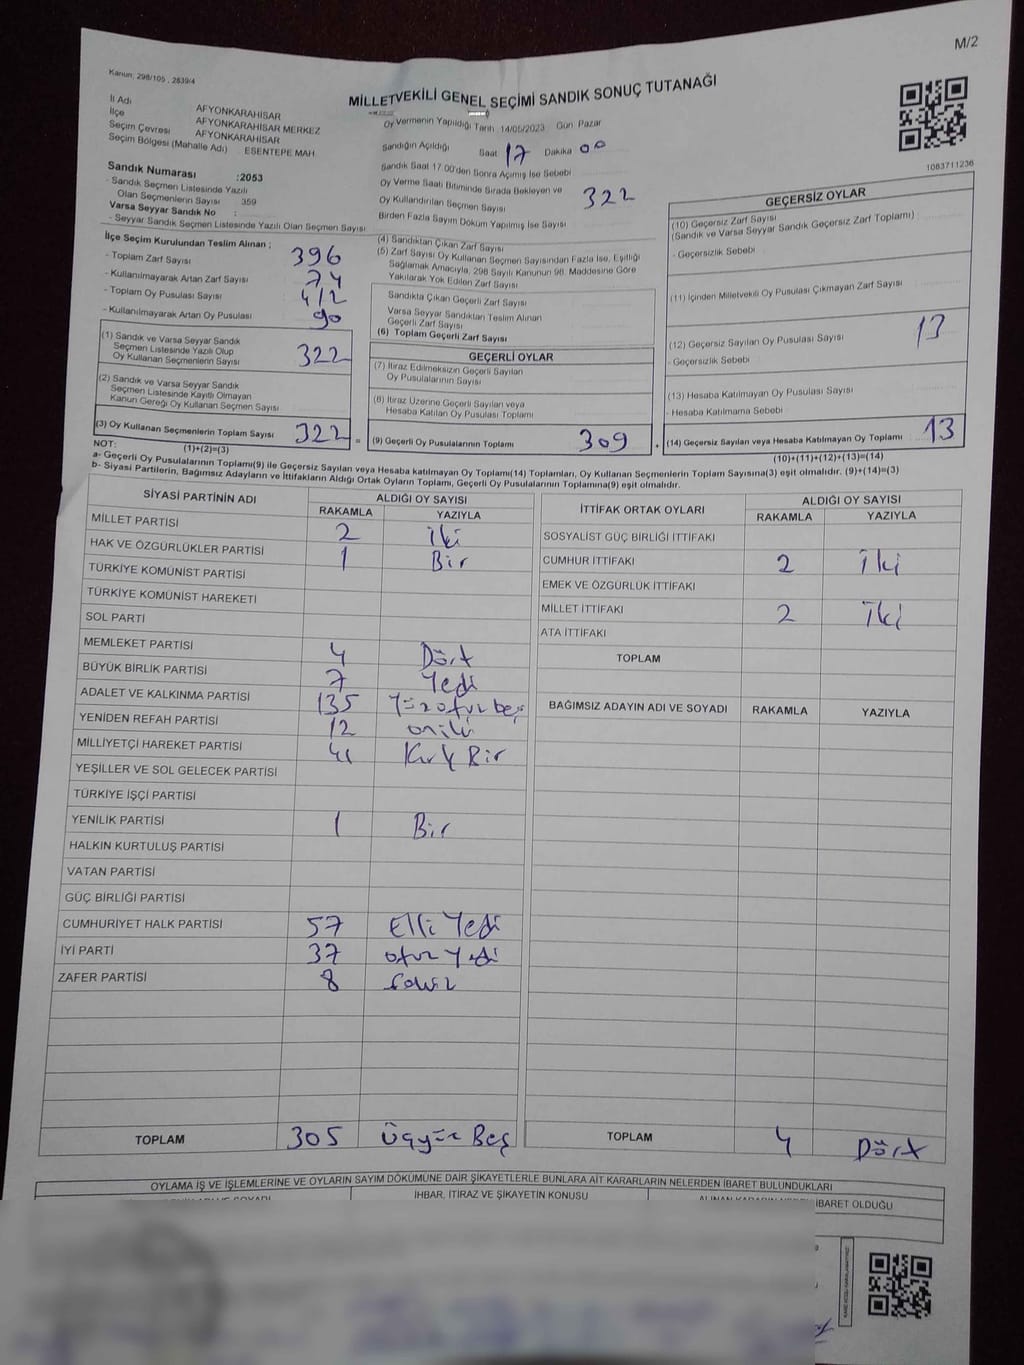 M/2
Kanun; 298/105 , 2839/4
MİLLETVEKİLİ GENEL SEÇİMİ SANDIK SONUÇ TUTANAĞI
İl Adı AFYONKARAHİSAR
İlçe AFYONKARAHİSAR MERKEZ
Seçim Çevresi AFYONKARAHİSAR
Seçim Bölgesi (Mahalle Adı) ESENTEPE MAH.
Sandık Numarası :2053
- Sandık Seçmen Listesinde Yazılı
Olan Seçmenlerin Sayısı 359
Varsa Seyyar Sandık No :
- Seyyar Sandık Seçmen Listesinde Yazılı Olan Seçmen Sayısı
Oy Vermenin Yapıldığı Tarih 14/05/2023 Gün Pazar
Sandığın Açıldığı Saat 17 Dakika 00
Sandık Saat 17.00'den Sonra Açılmış İse Sebebi
Oy Verme Saati Bitiminde Sırada Bekleyen ve
Oy Kullandırılan Seçmen Sayısı 322
Birden Fazla Sayım Döküm Yapılmış İse Sayısı
1083711236
İlçe Seçim Kurulundan Teslim Alınan ;
- Toplam Zarf Sayısı 396
- Kullanılmayarak Artan Zarf Sayısı 74
- Toplam Oy Pusulası Sayısı 412
- Kullanılmayarak Artan Oy Pusulası 90
(1) Sandık ve Varsa Seyyar Sandık
Seçmen Listesinde Yazılı Olup
Oy Kullanan Seçmenlerin Sayısı 322
(2) Sandık ve Varsa Seyyar Sandık
Seçmen Listesinde Kayıtlı Olmayan
Kanun Gereği Oy Kullanan Seçmen Sayısı
(3) Oy Kullanan Seçmenlerin Toplam Sayısı 322 =
(1)+(2)=(3)
(4) Sandıktan Çıkan Zarf Sayısı
(5) Zarf Sayısı Oy Kullanan Seçmen Sayısından Fazla İse, Eşitliği
Sağlamak Amacıyla, 298 Sayılı Kanunun 98. Maddesine Göre
Yakılarak Yok Edilen Zarf Sayısı
Sandıkta Çıkan Geçerli Zarf Sayısı
Varsa Seyyar Sandıktan Teslim Alınan
Geçerli Zarf Sayısı
(6) Toplam Geçerli Zarf Sayısı
GEÇERLİ OYLAR
(7) İtiraz Edilmeksizin Geçerli Sayılan
Oy Pusulalarının Sayısı
(8) İtiraz Üzerine Geçerli Sayılan veya
Hesaba Katılan Oy Pusulası Toplamı
(9) Geçerli Oy Pusulalarının Toplamı 309
GEÇERSİZ OYLAR
(10) Geçersiz Zarf Sayısı
(Sandık ve Varsa Seyyar Sandık Geçersiz Zarf Toplamı)
- Geçersizlik Sebebi
(11) İçinden Milletvekili Oy Pusulası Çıkmayan Zarf Sayısı
(12) Geçersiz Sayılan Oy Pusulası Sayısı 13
- Geçersizlik Sebebi
(13) Hesaba Katılmayan Oy Pusulası Sayısı
- Hesaba Katılmama Sebebi
(14) Geçersiz Sayılan veya Hesaba Katılmayan Oy Toplamı 13
(10)+(11)+(12)+(13)=(14)
NOT:
a- Geçerli Oy Pusulalarının Toplamı(9) ile Geçersiz Sayılan veya Hesaba katılmayan Oy Toplamı(14) Toplamları, Oy Kullanan Seçmenlerin Toplam Sayısına(3) eşit olmalıdır. (9)+(14)=(3)
b- Siyasi Partilerin, Bağımsız Adayların ve İttifakların Aldığı Ortak Oyların Toplamı, Geçerli Oy Pusulalarının Toplamına(9) eşit olmalıdır.
SİYASİ PARTİNİN ADI ALDIĞI OY SAYISI
RAKAMLA YAZIYLA
MİLLET PARTİSİ 2 iki
HAK VE ÖZGÜRLÜKLER PARTİSİ 1 Bir
TÜRKİYE KOMÜNİST PARTİSİ
TÜRKİYE KOMÜNİST HAREKETİ
SOL PARTİ
MEMLEKET PARTİSİ 4 Dört
BÜYÜK BİRLİK PARTİSİ 7 Yedi
ADALET VE KALKINMA PARTİSİ 135 Yüzotuzbeş
YENİDEN REFAH PARTİSİ 12 oniki
MİLLİYETÇİ HAREKET PARTİSİ 41 Kırk Bir
YEŞİLLER VE SOL GELECEK PARTİSİ
TÜRKİYE İŞÇİ PARTİSİ
YENİLİK PARTİSİ 1 Bir
HALKIN KURTULUŞ PARTİSİ
VATAN PARTİSİ
GÜÇ BİRLİĞİ PARTİSİ
CUMHURİYET HALK PARTİSİ 57 Elli Yedi
İYİ PARTİ 37 otuz Yedi
ZAFER PARTİSİ 8 Sekiz
TOPLAM 305 Üçyüz Beş
İTTİFAK ORTAK OYLARI ALDIĞI OY SAYISI
RAKAMLA YAZIYLA
SOSYALİST GÜÇ BİRLİĞİ İTTİFAKI
CUMHUR İTTİFAKI 2 İki
EMEK VE ÖZGÜRLÜK İTTİFAKI
MİLLET İTTİFAKI 2 İki
ATA İTTİFAKI
TOPLAM
BAĞIMSIZ ADAYIN ADI VE SOYADI RAKAMLA YAZIYLA
TOPLAM 4 Dört
OYLAMA İŞ VE İŞLEMLERİNE VE OYLARIN SAYIM DÖKÜMÜNE DAİR ŞİKAYETLERLE BUNLARA AİT KARARLARIN NELERDEN İBARET BULUNDUKLARI
İHBAR, İTİRAZ VE ŞİKAYETİN KONUSU
İBARET OLDUĞU